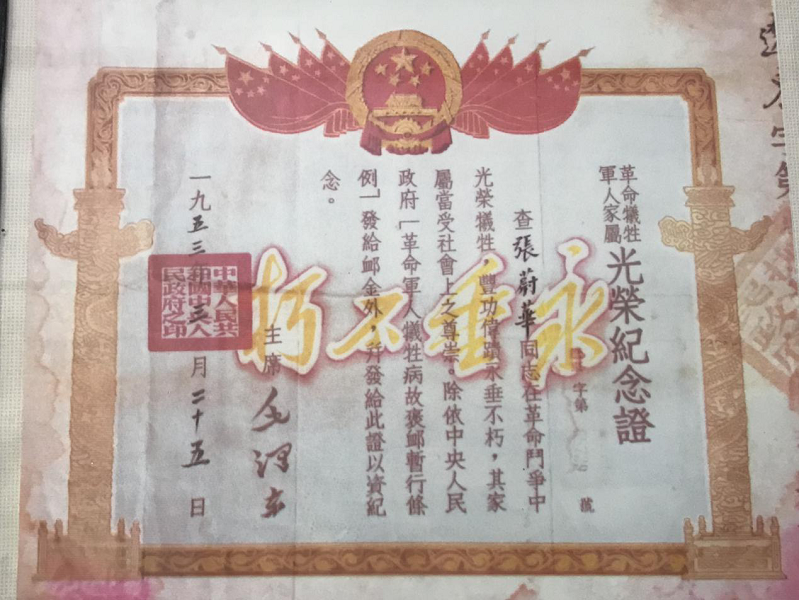 革命犧牲
軍人家屬
光榮紀念證
字第
號
查張蔚華同志在革命鬥爭中
光榮犧牲，豐功偉績永垂不朽，其家
屬當受社會上之尊崇。除依中央人民
政府「革命軍人犧牲病故褒卹暫行條
例」發給卹金外，并發給此證以資紀
念。
永垂不朽
主席 毛澤东
一九五三年三月二十五日
中華人民共
和國中央人
民政府之印